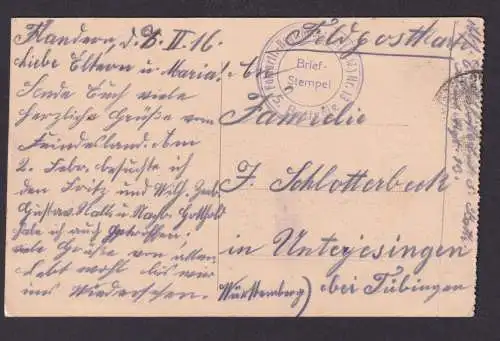 Flandern, d. 8. II. 16.
Liebe Eltern u. Maria!
Sende Euch viele
herzliche Grüße vom
Feindesland. Am
2. Febr. besuchte ich
den Fritz und Wilh.
Gustav u. Gotthold
habe ich auch getroffen.
viele Grüße von allen
Lebt wohl bis wir
uns Wiedersehen.
Feldpostkarte
Brief-
Stempel
An
Familie
J. Schlotterbeck
in Unterjesingen
bei Tübingen
(Württemberg)